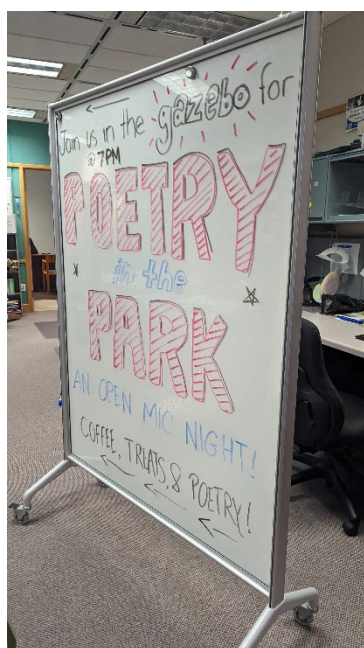 Join us in the gazebo for
@ 7PM
POETRY
in the
PARK
AN OPEN MIC NIGHT!
COFFEE, TREATS, & POETRY!